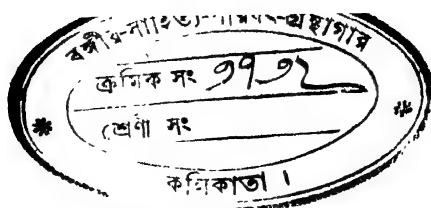 বঙ্গীয়-সাহিত্য-পরিষৎ-গ্রন্থাগার
ক্রমিক সং ৩৭৩২
শ্রেণী সং
কলিকাতা ।